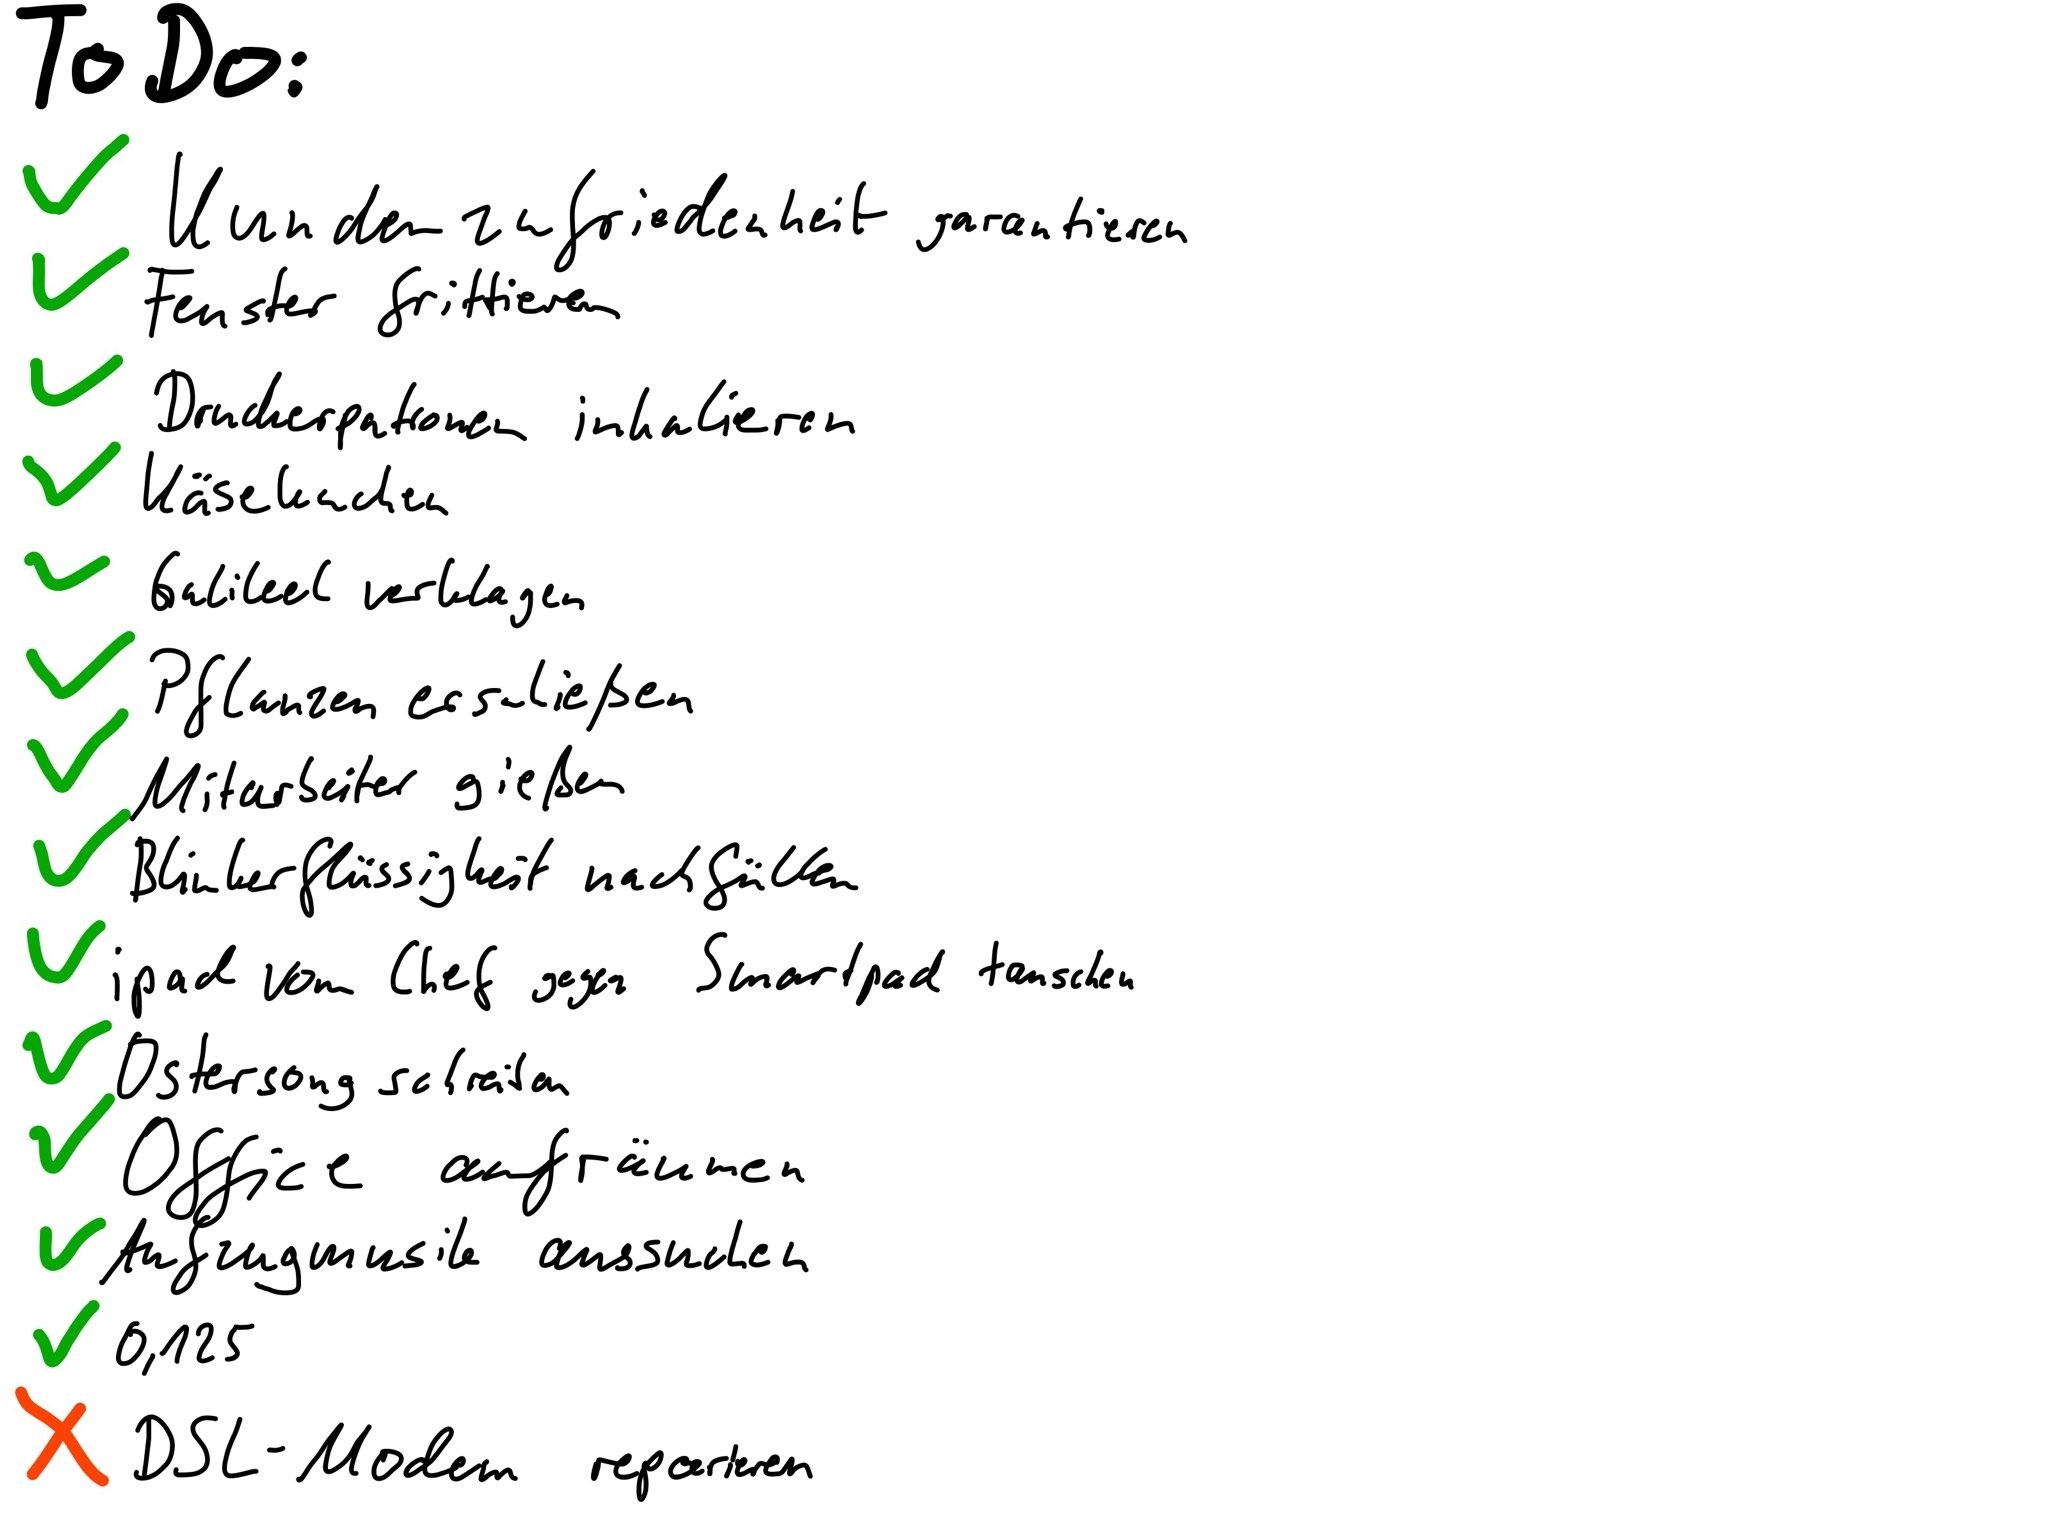 To Do:
Kundenzufriedenheit garantieren
Fenster frittieren
Druckerpatronen inhalieren
Käsekuchen
Galileel verklagen
Pflanzen erschießen
Mitarbeiter gießen
Blinkerflüssigkeit nachfüllen
ipad vom Chef gegen Smartpad tauschen
Ostersong schreiben
Office aufräumen
Aufzugmusik aussuchen
0,125
DSL-Modem reparieren